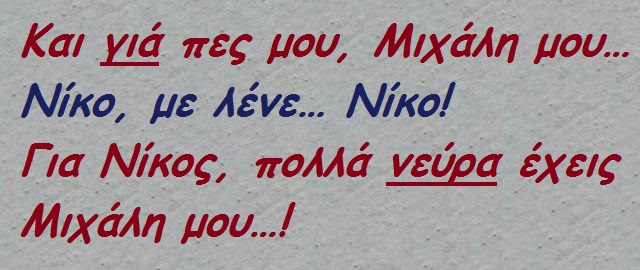 Και γιά πες μου, Μιχάλη μου...
Νίκο, με λένε... Νίκο!
Για Νίκος, πολλά νεύρα έχεις
Μιχάλη μου...!